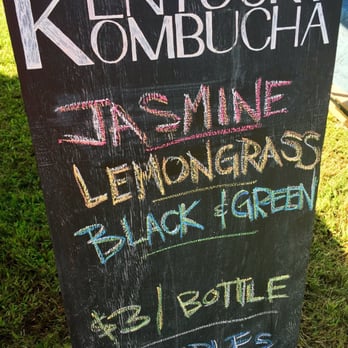 KENTUCKY
KOMBUCHA
JASMINE
LEMONGRASS
BLACK & GREEN
$3/ BOTTLE